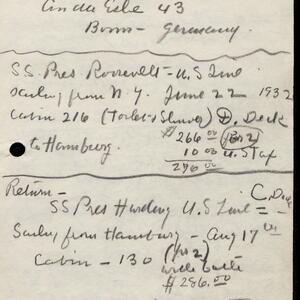 43
Bonn - Germany.
SS. Pres. Roosevelt - U.S Line
Sailing from N.Y. June 22 1932
Cabin 216 (Toilet & Shower) D. Deck
$266.00 (for 2)
to Hamburg. 10.00 U.S Tax
276.00
Return - C. Deck
SS Pres Harding U.S Line =
Sailing from Hamburg - Aug 17th
Cabin - 130 (for 2)
with bath
$ 286.00